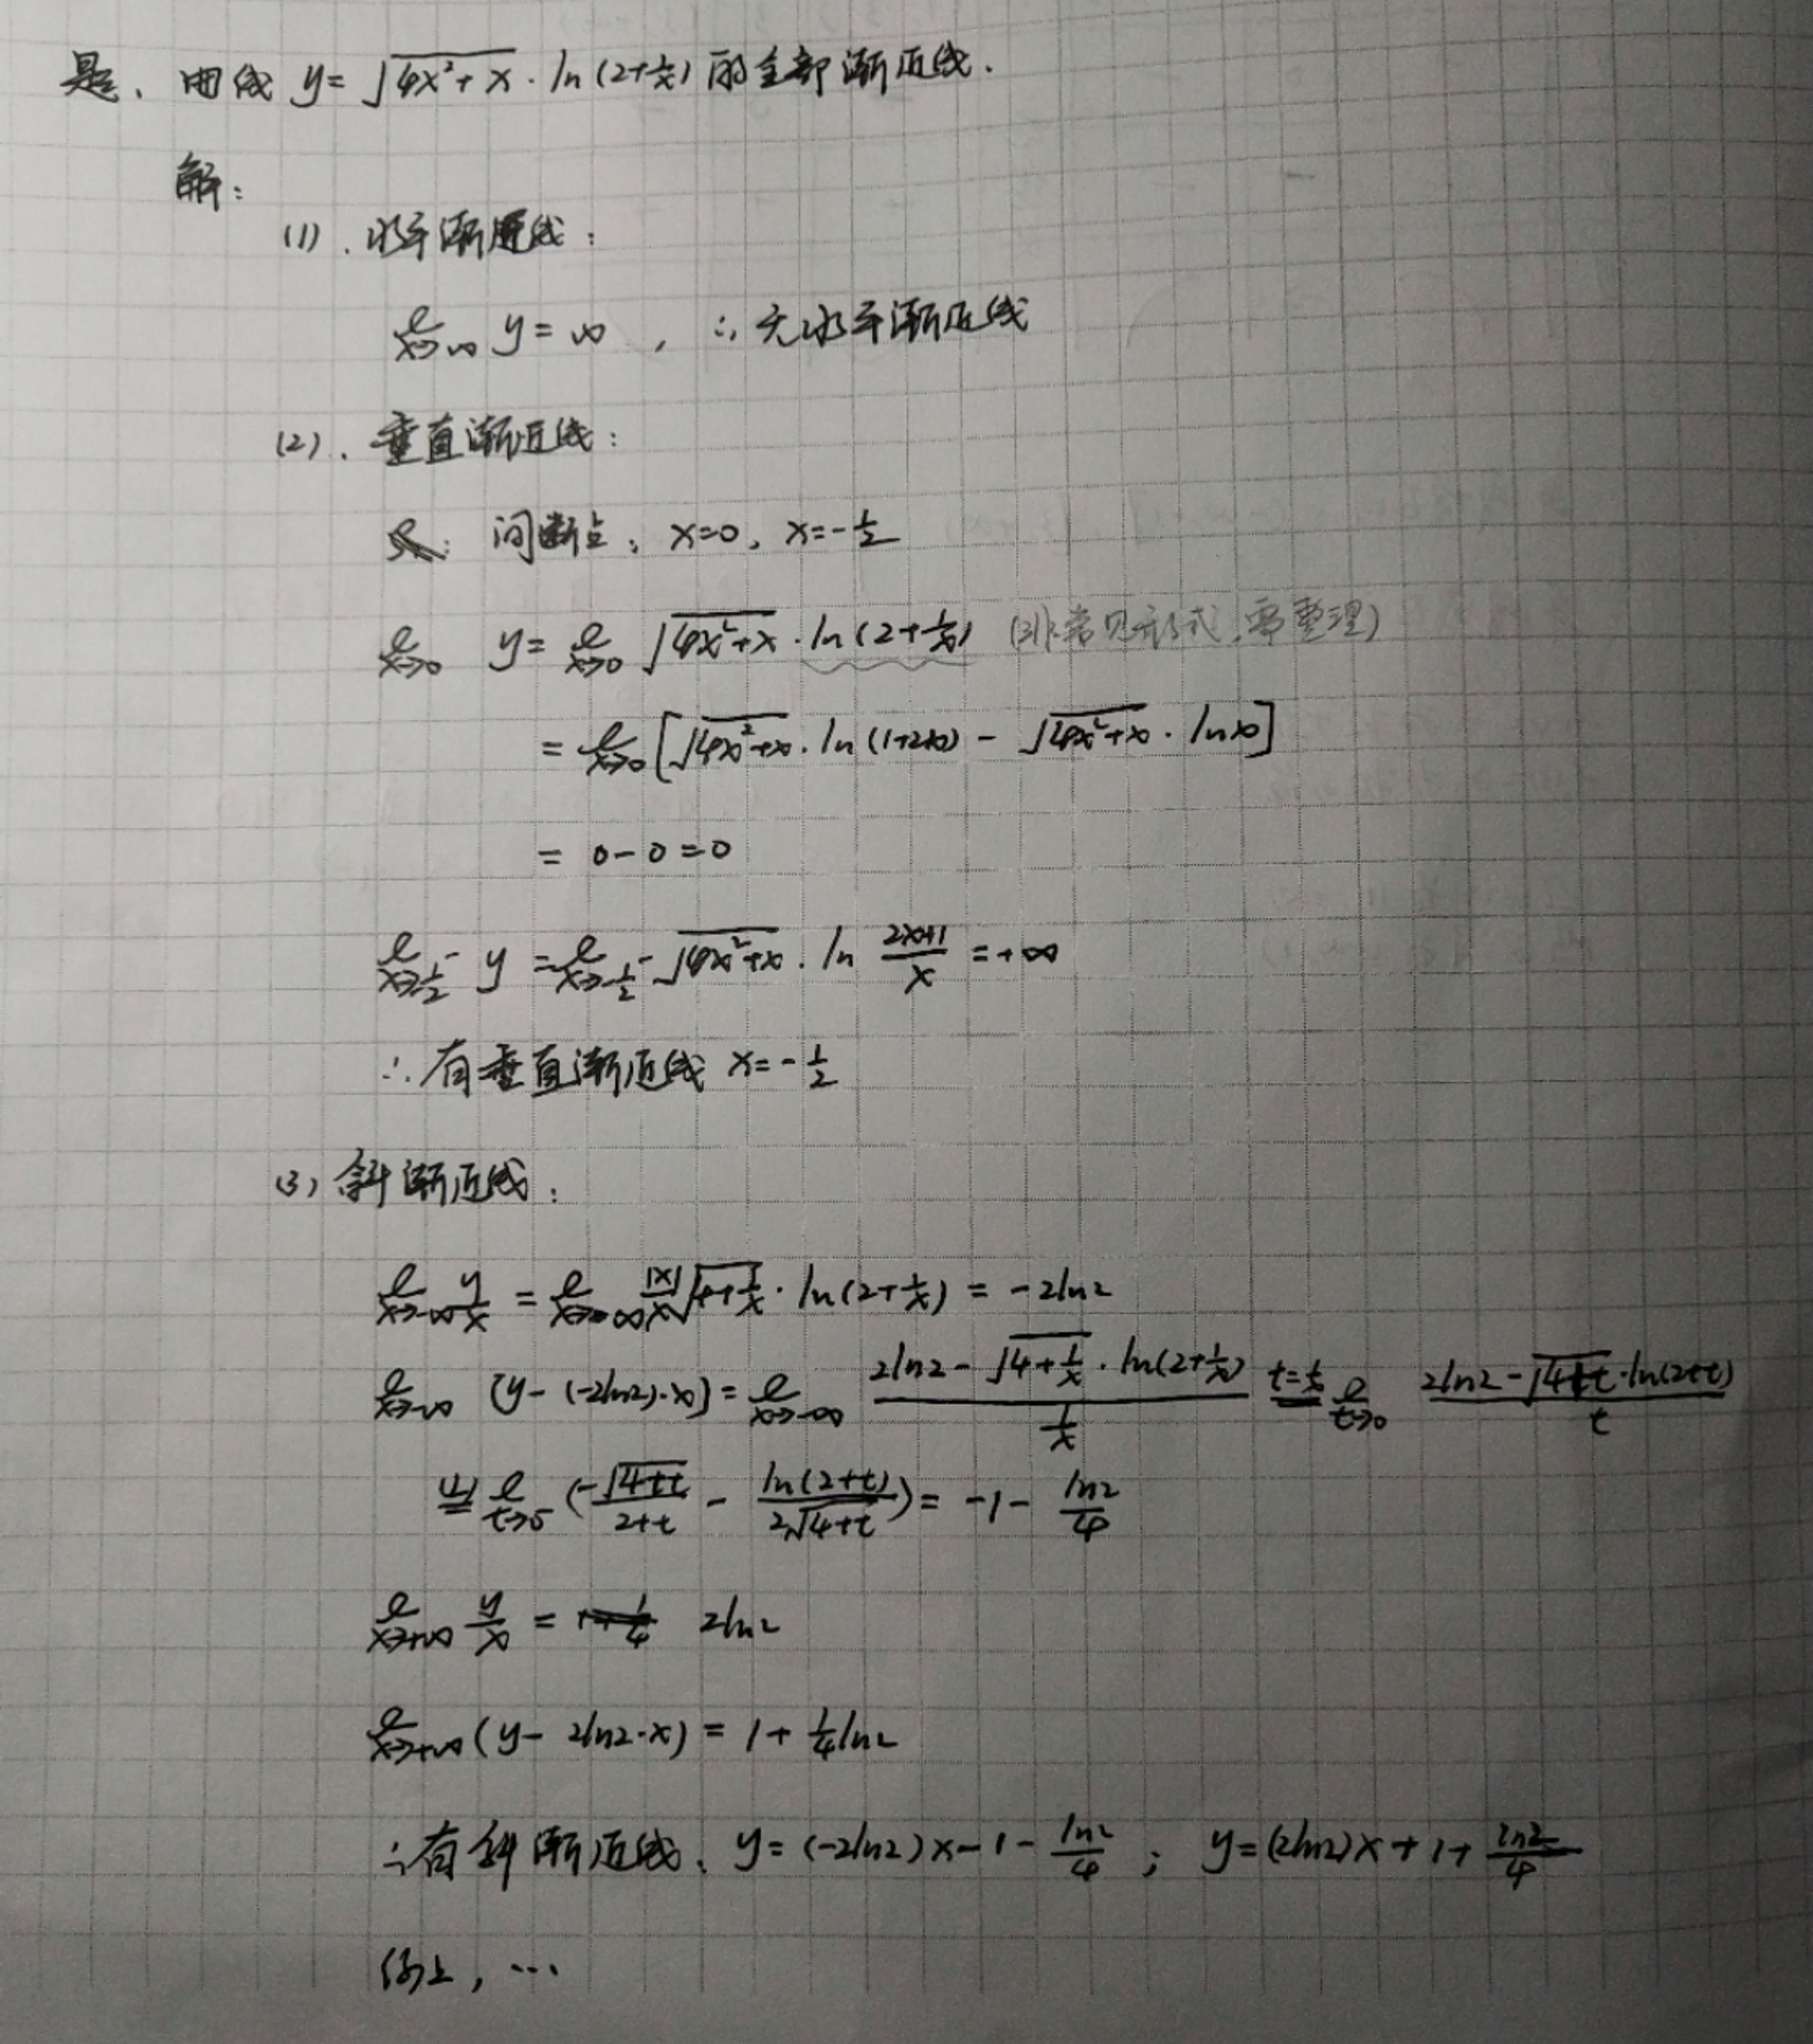 题、曲线 y=√(4x²+x)·ln(2+1/x) 的全部渐近线.
解:
(1). 水平渐近线:
lim x→∞ y=∞, ∴无水平渐近线
(2). 垂直渐近线:
间断点: x=0, x=-1/2
lim x→0 y= lim x→0 √(4x²+x)·ln(2+1/x) (非常见形式,需整理)
= lim x→0 [√(4x²+x)·ln(1+2x) - √(4x²+x)·lnx]
= 0-0=0
lim x→-1/2⁻ y = lim x→-1/2⁻ √(4x²+x)·ln (2x+1)/x =+∞
∴有垂直渐近线 x=-1/2
(3) 斜渐近线:
lim x→-∞ y/x = lim x→-∞ |x|/x √(4+1/x)·ln(2+1/x) = -2ln2
lim x→-∞ [y-(-2ln2)·x] = lim x→-∞ (2ln2-√(4+1/x)·ln(2+1/x))/(1/x) t=1/x lim t→0 (2ln2-√(4+t)·ln(2+t))/t
lim t→0⁻ (-√(4+t)/(2+t) - ln(2+t)/(2√(4+t))) = -1- ln2/4
lim x→+∞ y/x = 2ln2
lim x→+∞ (y-2ln2·x) = 1+1/4 ln2
∴有斜渐近线: y=(-2ln2)x-1-ln2/4 ; y=(2ln2)x+1+ln2/4
综上, …